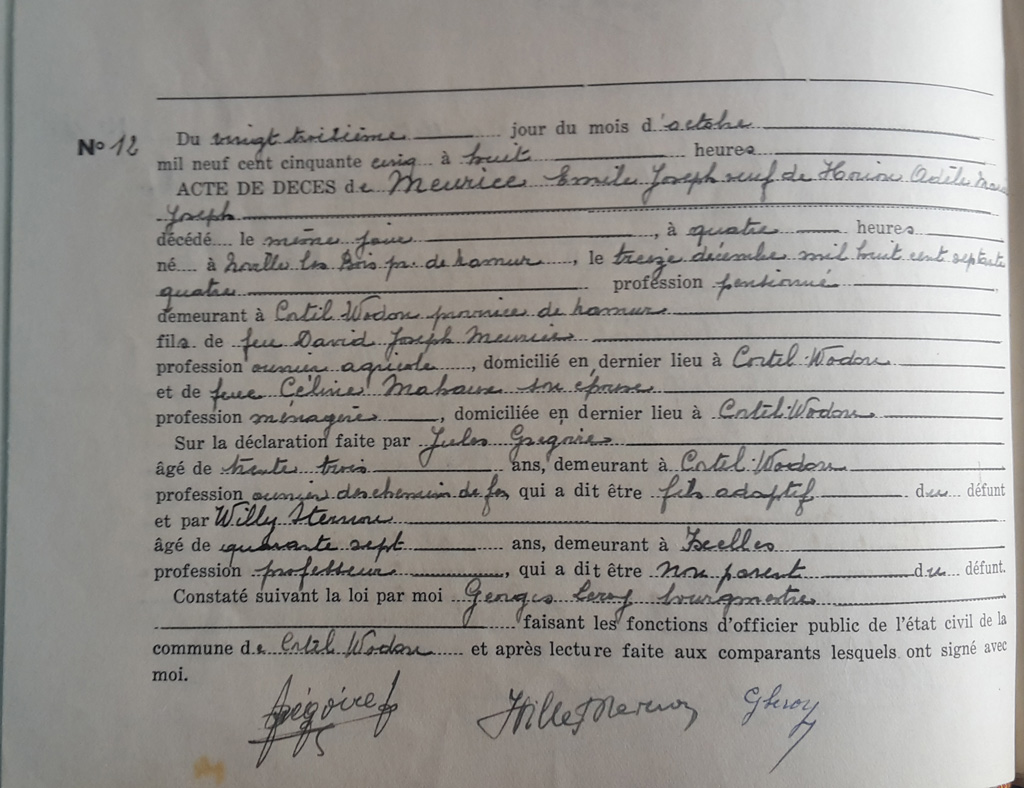 No 12
Du vingt troisième jour du mois d'octobre
mil neuf cent cinquante cinq à huit heures
ACTE DE DECES de Meurice Emile Joseph veuf de Horion Odile
Joseph
décédé le même jour, à quatre heures
né à Noville les Bois pr. de Namur, le treize décembre mil huit cent septante
quatre profession pensionné
demeurant à Cortil-Wodon province de Namur
fils de feu David Joseph Meurice
profession ouvrier agricole, domicilié en dernier lieu à Cortil-Wodon
et de feue Céline son épouse
profession ménagère, domiciliée en dernier lieu à Cortil-Wodon
Sur la déclaration faite par Jules Grégoire
âgé de trente trois ans, demeurant à Cortil-Wodon
profession ouvrier des chemin de fer qui a dit être fils adoptif du défunt
et par Willy Sternon
âgé de quarante sept ans, demeurant à Ixelles
profession professeur, qui a dit être non parent du défunt.
Constaté suivant la loi par moi Georges Leroy bourgmestre
faisant les fonctions d'officier public de l'état civil de la
commune de Cortil Wodon et après lecture faite aux comparants lesquels ont signé avec
moi.
Grégoire J Willy Sternon GLeroy